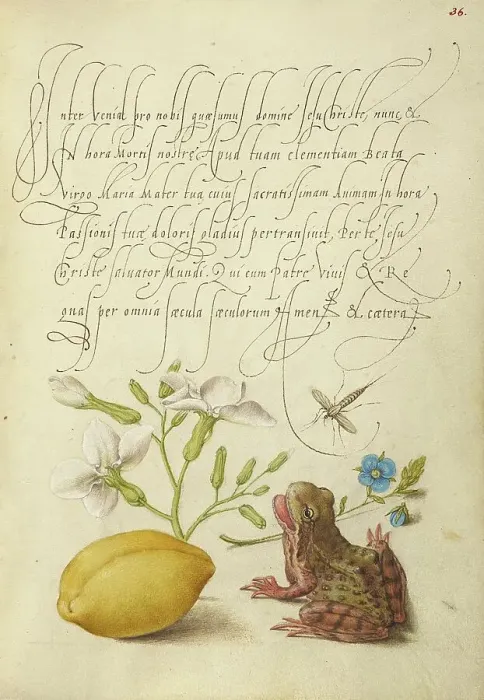 36.
Interveniat pro nobis quæsumus domine Jesu Christe, nunc &
In hora Mortis nostræ Apud tuam clementiam Beata
Virgo Maria Mater tua cuius sacratissimam Animam In hora
Passionis tuæ doloris gladius pertransiuit, Per te Jesu
Christe saluator Mundi. Qui cum Patre Viuis & Re
gnas per omnia sæcula sæculorum Amen & cætera